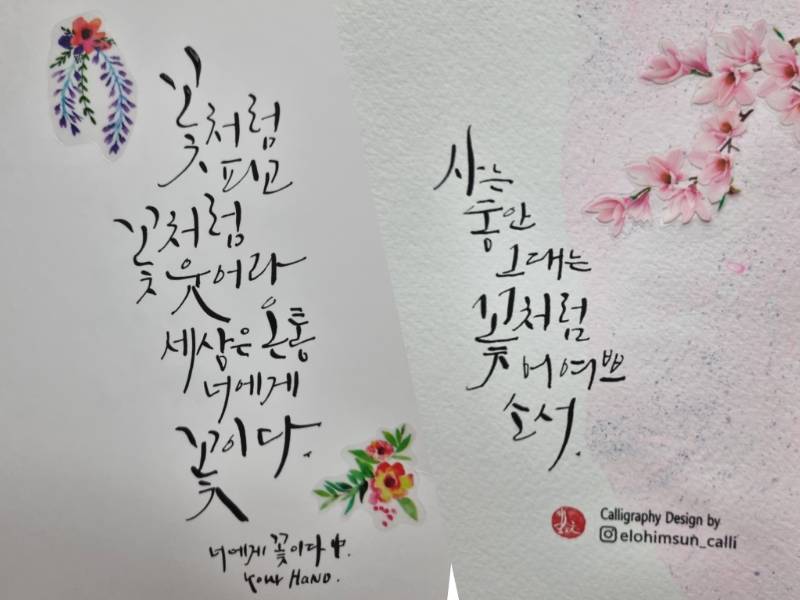 꽃처럼
피고
꽃처럼
웃어라
세상은 온통
너에게
꽃이다.
너에게 꽃이다 中.
Your HAND.
사는
동안
그대는
꽃처럼
어여쁘
소서.
Calligraphy Design by
elohimsun_calli